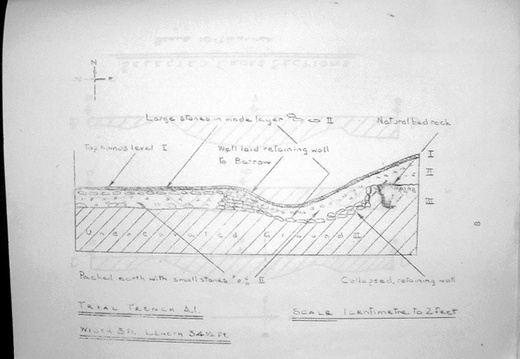 N
Large stones in mode layer II
Natural bed rock
Top humus level I
Well laid retaining wall
to Barrow
I
II
III
Unexcavated Ground III
8
Packed earth with small stones "o," II
Collapsed retaining wall
TRIAL TRENCH A.1
SCALE 1 centimetre to 2 feet
WIDTH 3 ft. LENGTH 34½ ft